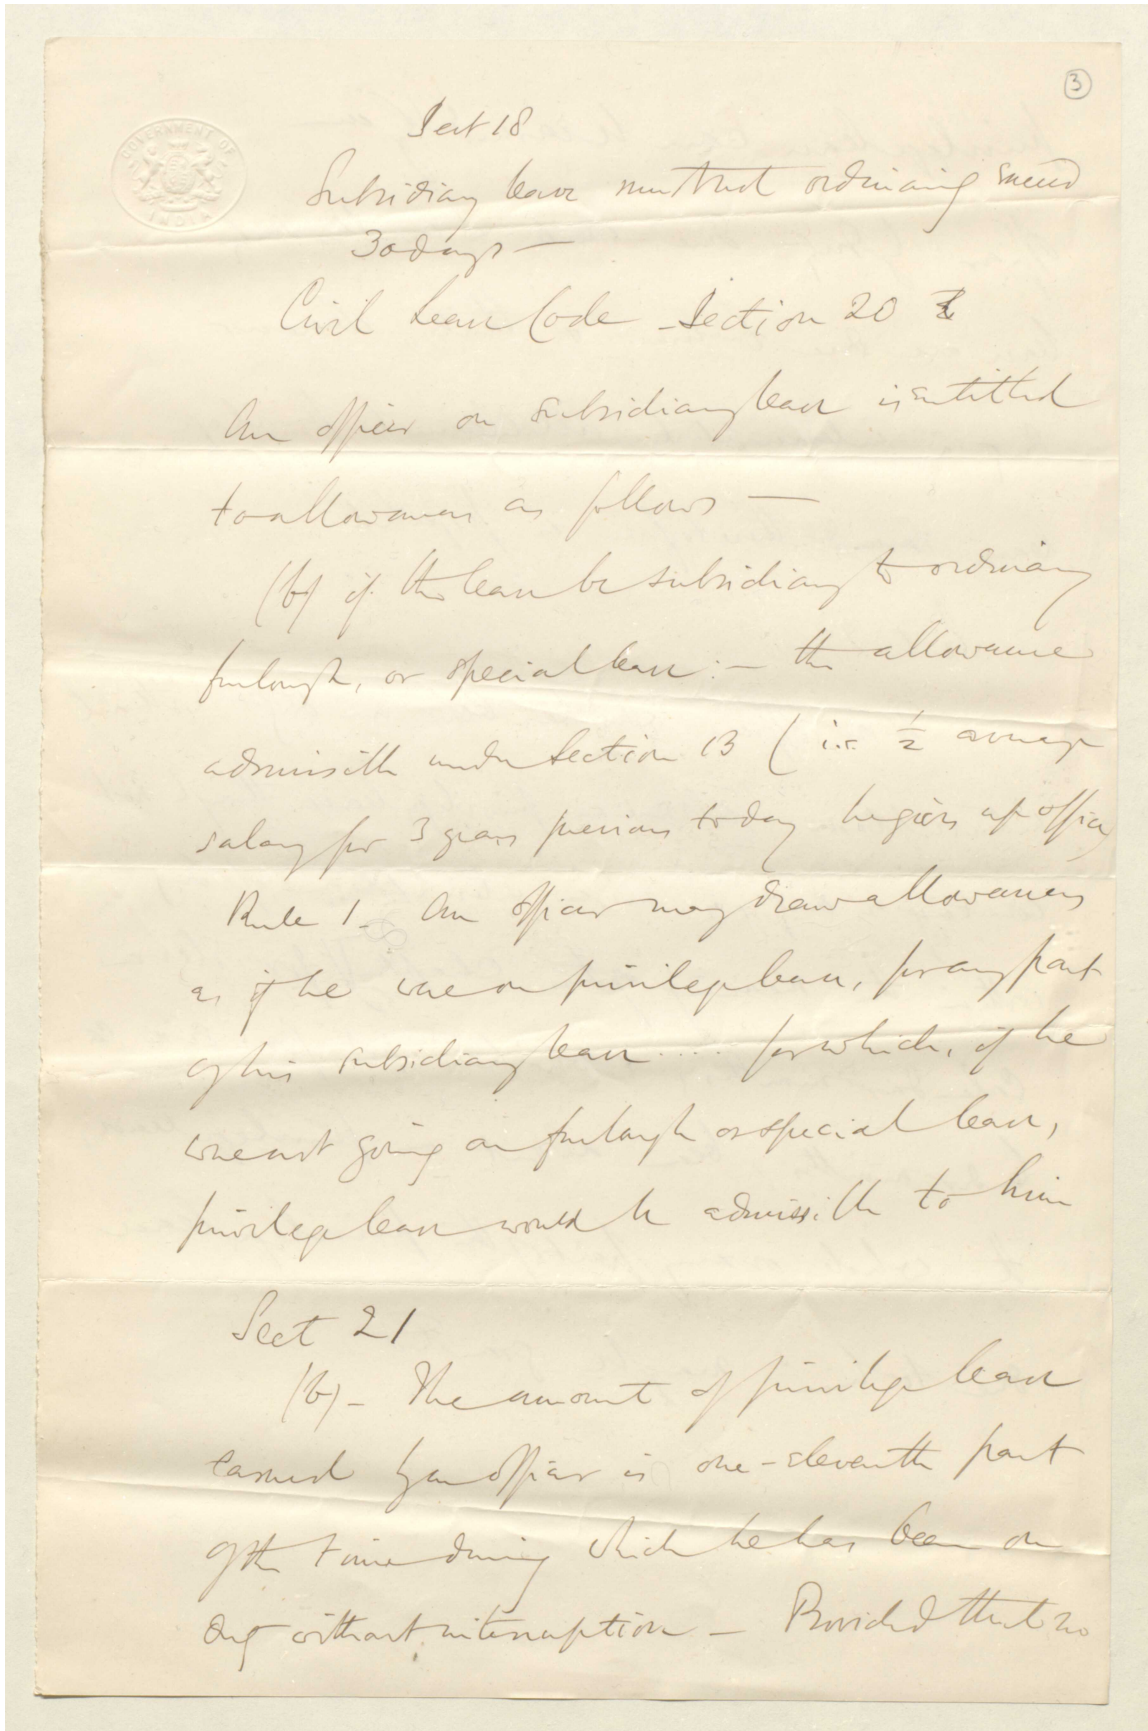 3
GOVERNMENT OF INDIA
Sect 18
Subsidiary leave must not ordinarily exceed
30 days —
Civil Leave Code - Section 20
An officer on subsidiary leave is entitled
to allowances as follows —
(b) if the leave be subsidiary to ordinary
furlough, or special leave :— the allowance
admissible under Section 13 ( i.e. ½ average
salary for 3 years previous to day he gives up office)
Rule 1 - An officer may draw allowances
as if he were on privilege leave, for any part
of his subsidiary leave .... for which, if he
were not going on furlough or special leave,
privilege leave would be admissible to him
Sect 21
(b) - The amount of privilege leave
earned by an officer is one-eleventh part
of the time during which he has been on
duty without interruption — Provided that no